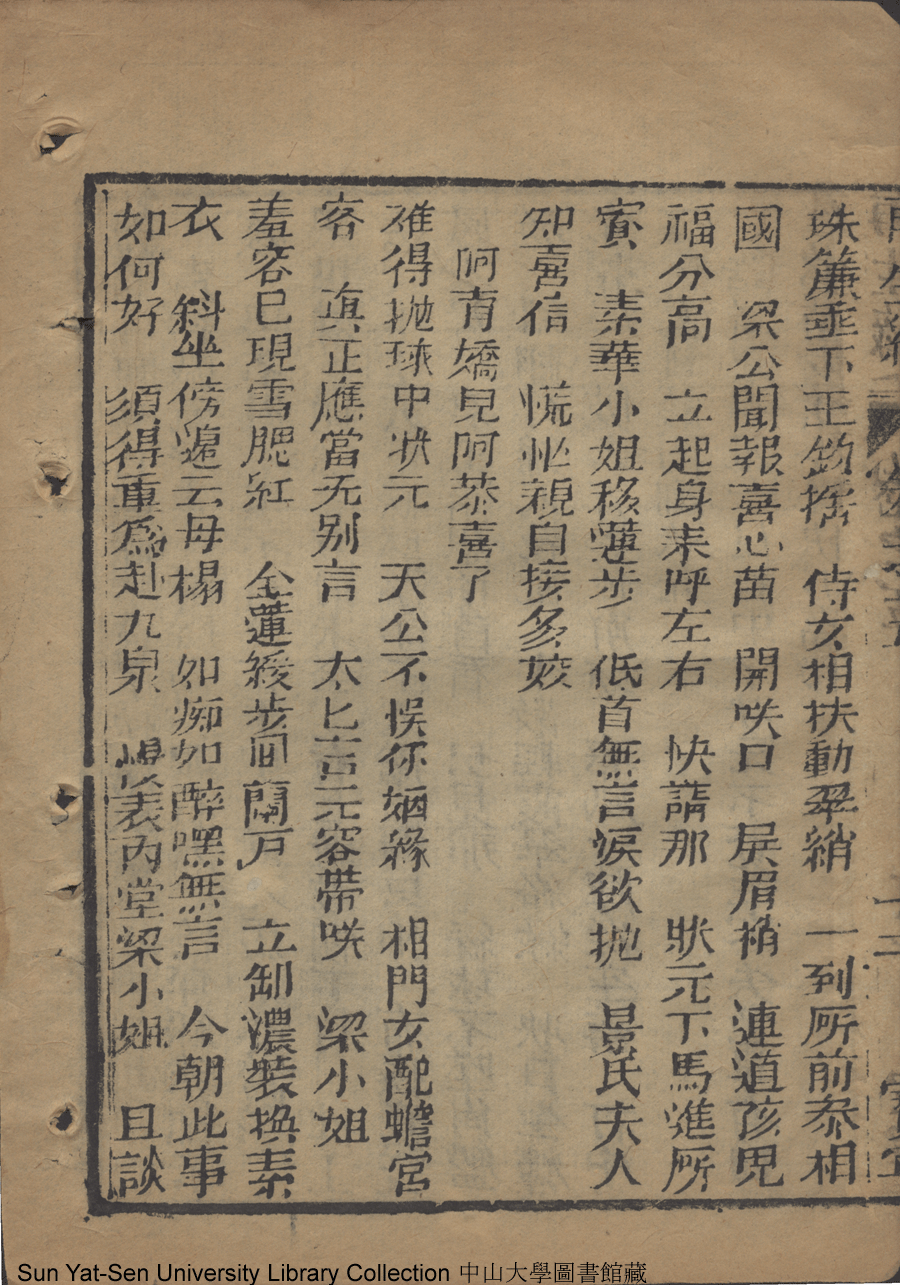 珠簾垂下玉鈎搖　侍女相扶動翠綃　一列所前叅相
國　梁公聞報喜心苗　開咲口　展眉稍　連道孩児
福分高　立起身来呼左右　快請那　狀元下馬進所
賓　素華小姐移蓮步　低首無言淚欲抛　景氏夫人
知喜信　慌忙親自接多姣
阿育嬌兒阿恭喜了
难得抛球中状元　天公不悮你姻緣　相門女配蟾宮
客　真正應當无别言　太匕言元容帶咲　梁小姐
羞容已現雪腮紅　金蓮緩步囬蘭户　立卸濃裝換素
衣　斜坐傍邉云母榻　如痴如醉嘿無言　今朝此事
如何好　須得重爲赴九泉　慢表内堂梁小姐　且談
Sun Yat-Sen University Library Collection 中山大學圖書館藏